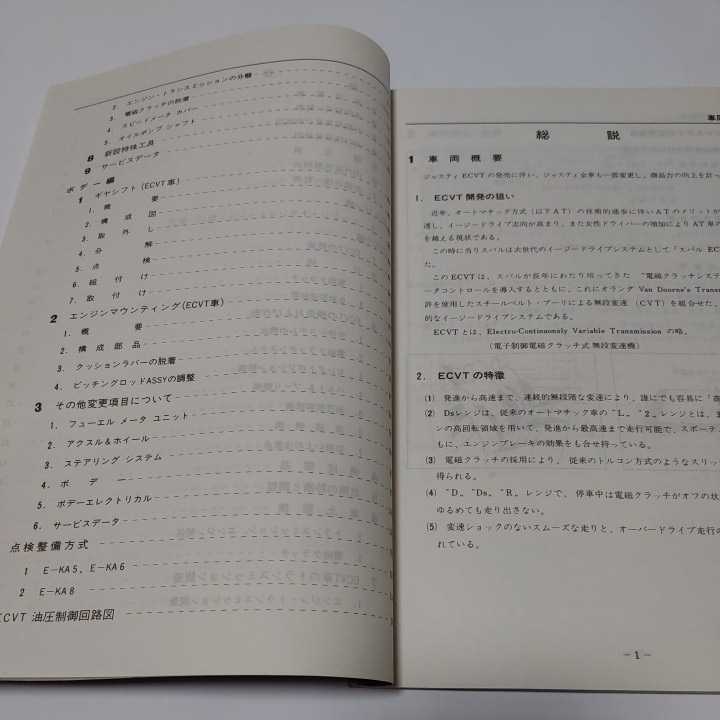 2. エンジン・トランスミッションの分離
3. 電磁クラッチの脱着
4. スピードメータ カバー
5. オイルポンプ シャフト
8 新設特殊工具
9 サービスデータ
ボデー編
1 ギヤシフト(ECVT車)
1. 概 要
2. 構 成 図
3. 取 外 し
4. 分 解
5. 点 検
6. 組 付 け
7. 取 付 け
2 エンジンマウンティング(ECVT車)
1. 概 要
2. 構 成 部 品
3. クッションラバーの脱着
4. ピッチングロッドASSYの調整
3 その他変更項目について
1. フューエル メータ ユニット
2. アクスル&ホイール
3. ステアリング システム
4. ボ デ ー
5. ボデーエレクトリカル
6. サービスデータ
点検整備方式
1 E-KA5、E-KA6
2 E-KA8
ECVT 油圧制御回路図
総 説
1 車両概要
ジャスティ ECVT の発売に伴い、ジャスティ全車も一部変更し、商品力の向上を計っ
1. ECVT 開発の狙い
近年、オートマチック方式(以下AT)の技術的進歩に伴いATのメリットが
透し、イージードライブ志向が高まり、また女性ドライバーの増加によりAT車の
を越える現状である。
この時に当りスバルは次世代のイージードライブシステムとして「スバル EC
た。
このECVTは、スバルが長年にわたり培ってきた “電磁クラッチシステ
ータコントロールを導入するとともに、これにオランダ Van Doorne's Transm
許を使用したスチールベルト・プーリによる無段変速 (CVT) を組合せた、
的なイージードライブシステムである。
ECVTとは、Electro-Continuously Variable Transmission の略。
(電子制御電磁クラッチ式 無段変速機)
2. ECVT の特徴
(1) 発進から高速まで、連続的無段階な変速により、誰にでも容易に「
(2) Dsレンジは、従来のオートマチック車の “L„ “2„ レンジとは、
ンの高回転領域を用いて、発進から最高速まで走行可能で、スポーテ
もに、エンジンブレーキの効果をも合せ持っている。
(3) 電磁クラッチの採用により、従来のトルコン方式のようなスリッ
得られる。
(4) “D„ “Ds„ “R„ レンジで、停車中は電磁クラッチがオフの状
ゆるめても走り出さない。
(5) 変速ショックのないスムーズな走りと、オーバードライブ走行の
れている。
－1－